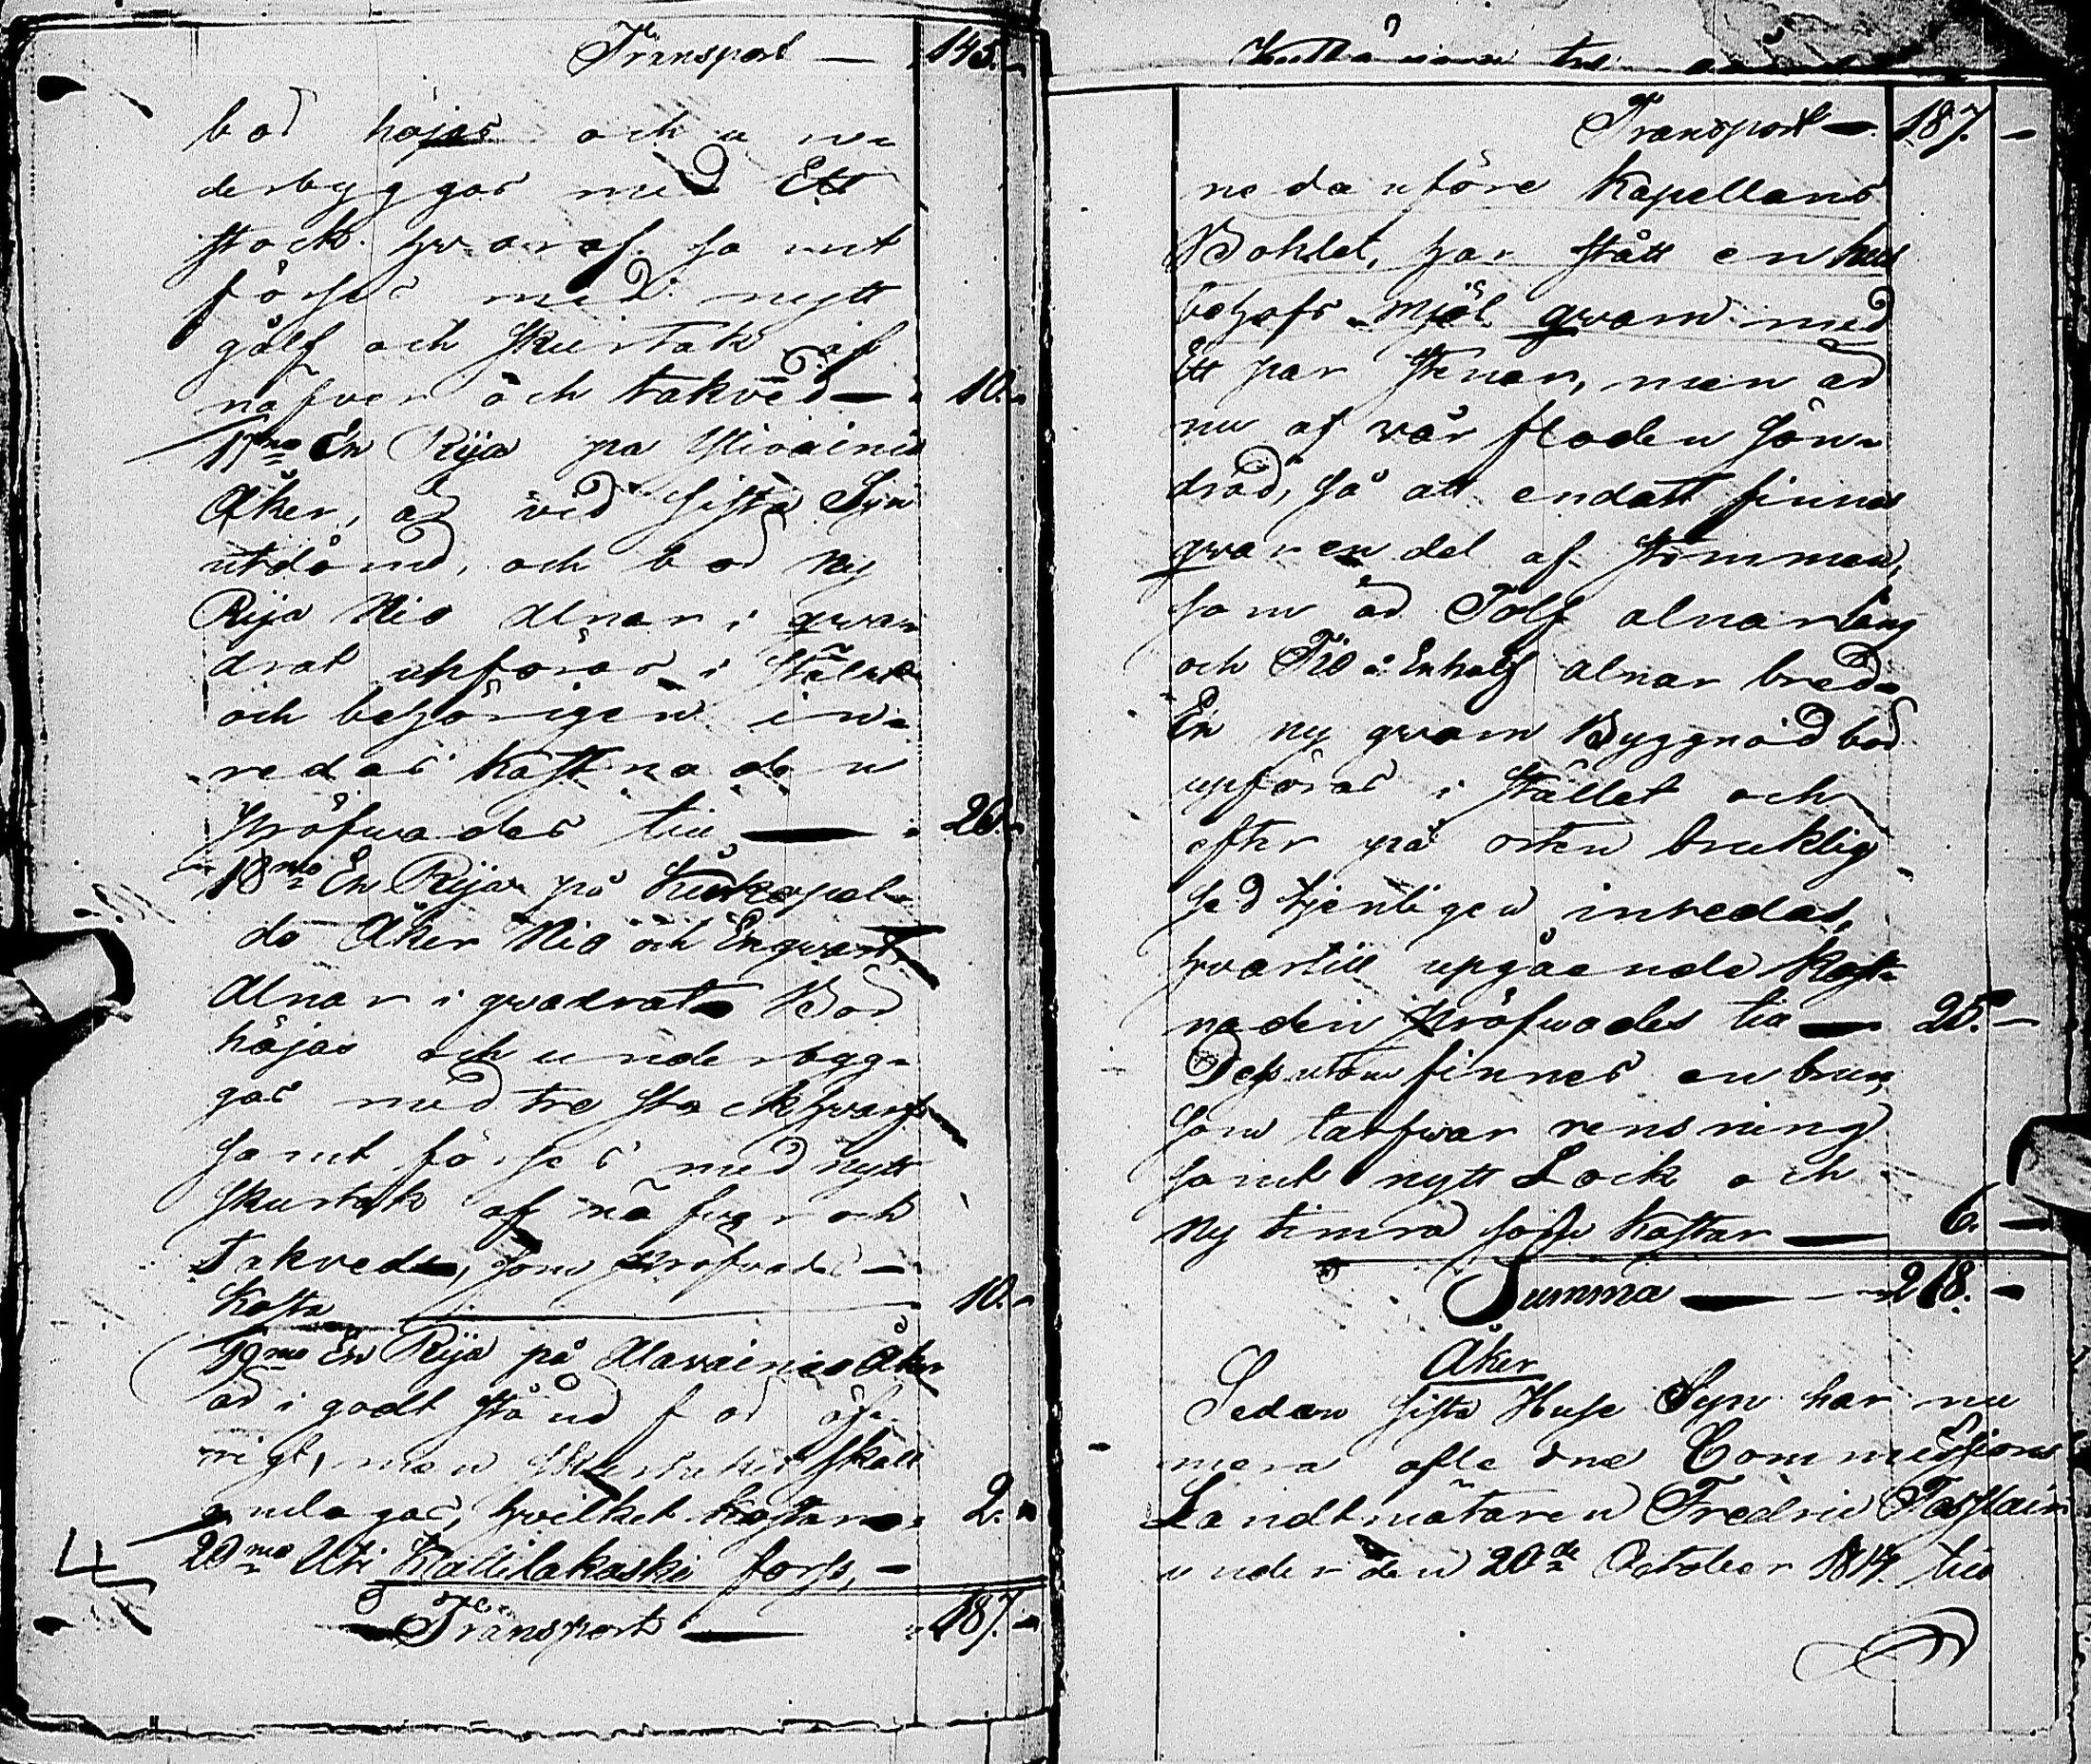 Transport — 145.-
bör höjas och un-
derbyggas med Ett
stock hvarf samt
förses med nytt
gålf och skurtak af
näfver och takved — 10.-
17mo En Rija på
Åker, är vid sista Syn
utdömd, och bör ny
Rija Nio alnar i qwa-
drat upföras i stället
och behörigen in-
redas kostnaden
pröfwades till — 20.-
18mo En Rija på
Åker Nio och En qwart
Alnar i qwadrat Bör
höjas och underbyg-
gas med tre stockhvarf
samt förses med nytt
skurtak af näfver och
Takved, som pröfvades
kosta — 10.-
19mo En Rija på Alavainio Åker
är i godt stånd för öf-
rigt, men skurtaket skall
omlagas, hvilket kostar 2.-
20mo Uti Kallilakoski fors, -
Transport — 187.-
Transport — 187. -
nedanföre Kapellans
Bohlet, har stått en hus
behofs mjöl qwarn med
Ett par stenar, men är
nu af vår floden sön-
drad, så att endast finnes
qvar en del af stommen,
som är Tolf alnar lång
och Tio & En half alnar bred.
En ny qwarn Byggnad bör
upföras i stället och
efter på orten bruklig
sed tjenligen inredas,
hvartill upgående kost-
naden pröfwades till — 25.-
Dessutom finnes en brun
som tarfwar rensning
samt nytt Lock och
ny timra som kostar — 6. -
Summa — 218. -
Åker
Sedan sista Huse Syn har nu
mera afledne Commissions
Landtmätaren Fredric
under den 20de October 1814 till